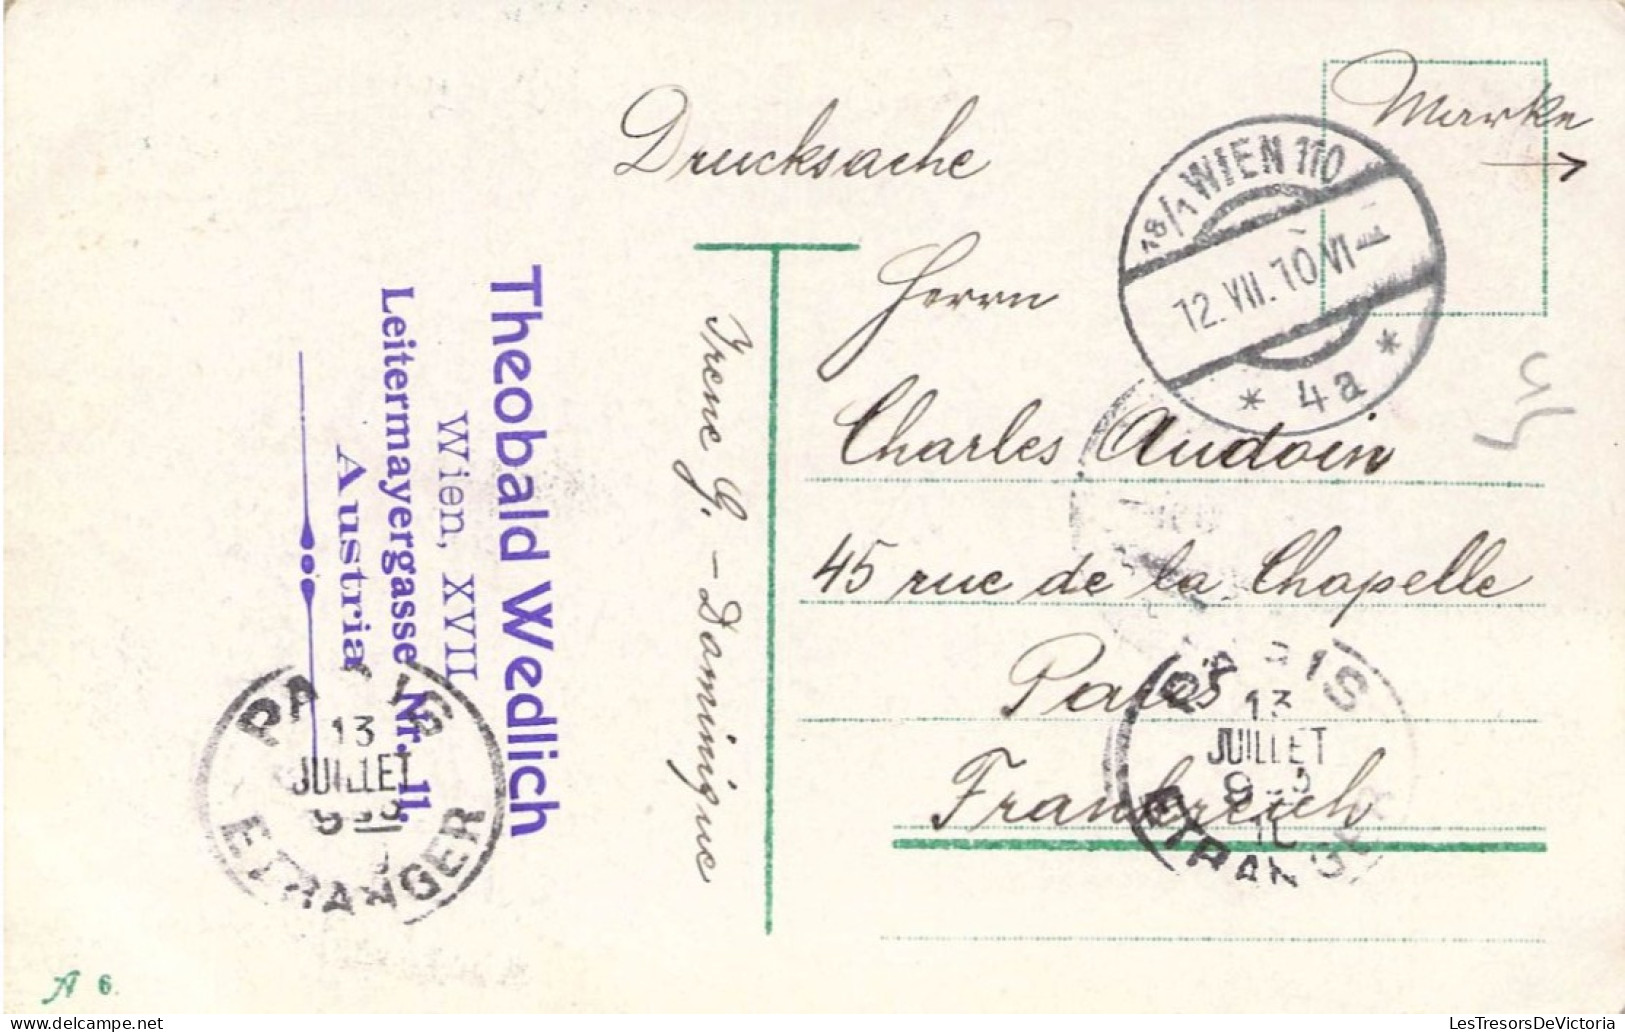 Drucksache
Marke
18/1 WIEN 110
12.VII.10.VI
* 4a *
Herrn
Charles Audoin
45 rue de la Chapelle
Paris
Frankreich
Irene G. - Dominique
Theobald Wedlich
Wien, XVII
Leitermayergasse Nr. 11.
Austria
PARIS
13
JUILLET
ETRANGER
PARIS
13
JUILLET
ETRANGER
A 6.
LesTresorsDeVictoria